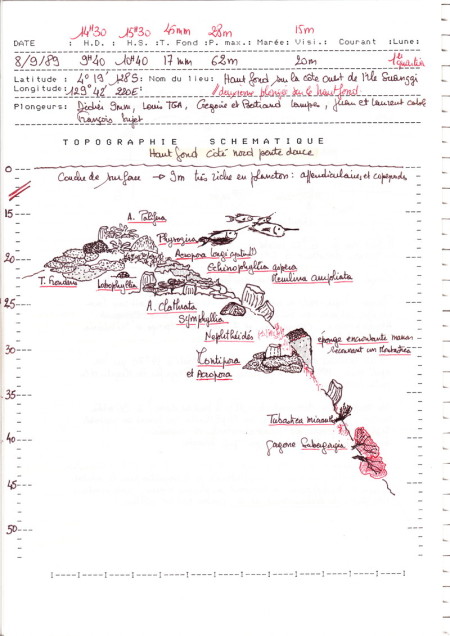 14H30 15H30 45mm 28m 15m
DATE : H.D. : H.S. :T. Fond :P. max.: Marée: Visi.: Courant :Lune:
8/9/89 9H40 10H40 17mm 62m 20m 1er quartier
Latitude : 4° 19' 128S: Nom du lieu: Haut fond sur la côte ouest de l'île Suanggi
Longitude: 129° 42' 280E: deuxième plongée sur le haut fond
Plongeurs: Louis TGA, Grégoire et Bertrand et Laurent
François
TOPOGRAPHIE SCHEMATIQUE
Haut fond Côté nord pente douce
0
Couche de surface → 9m très riche en plancton: appendiculaires, et copépodes
15
A. Palifera
Physogira
Acropora
20
Echinophyllia aspera
Merulina ampliata
T. frondens Lobophyllia
25
A. Clathrata
Symphyllia
Nephthéidés
éponge encroutante marron
30
recouvrant un
Montipora
et Acropora
35
Tubastrea micrantha
40
gorgone Subergorgia
45
50